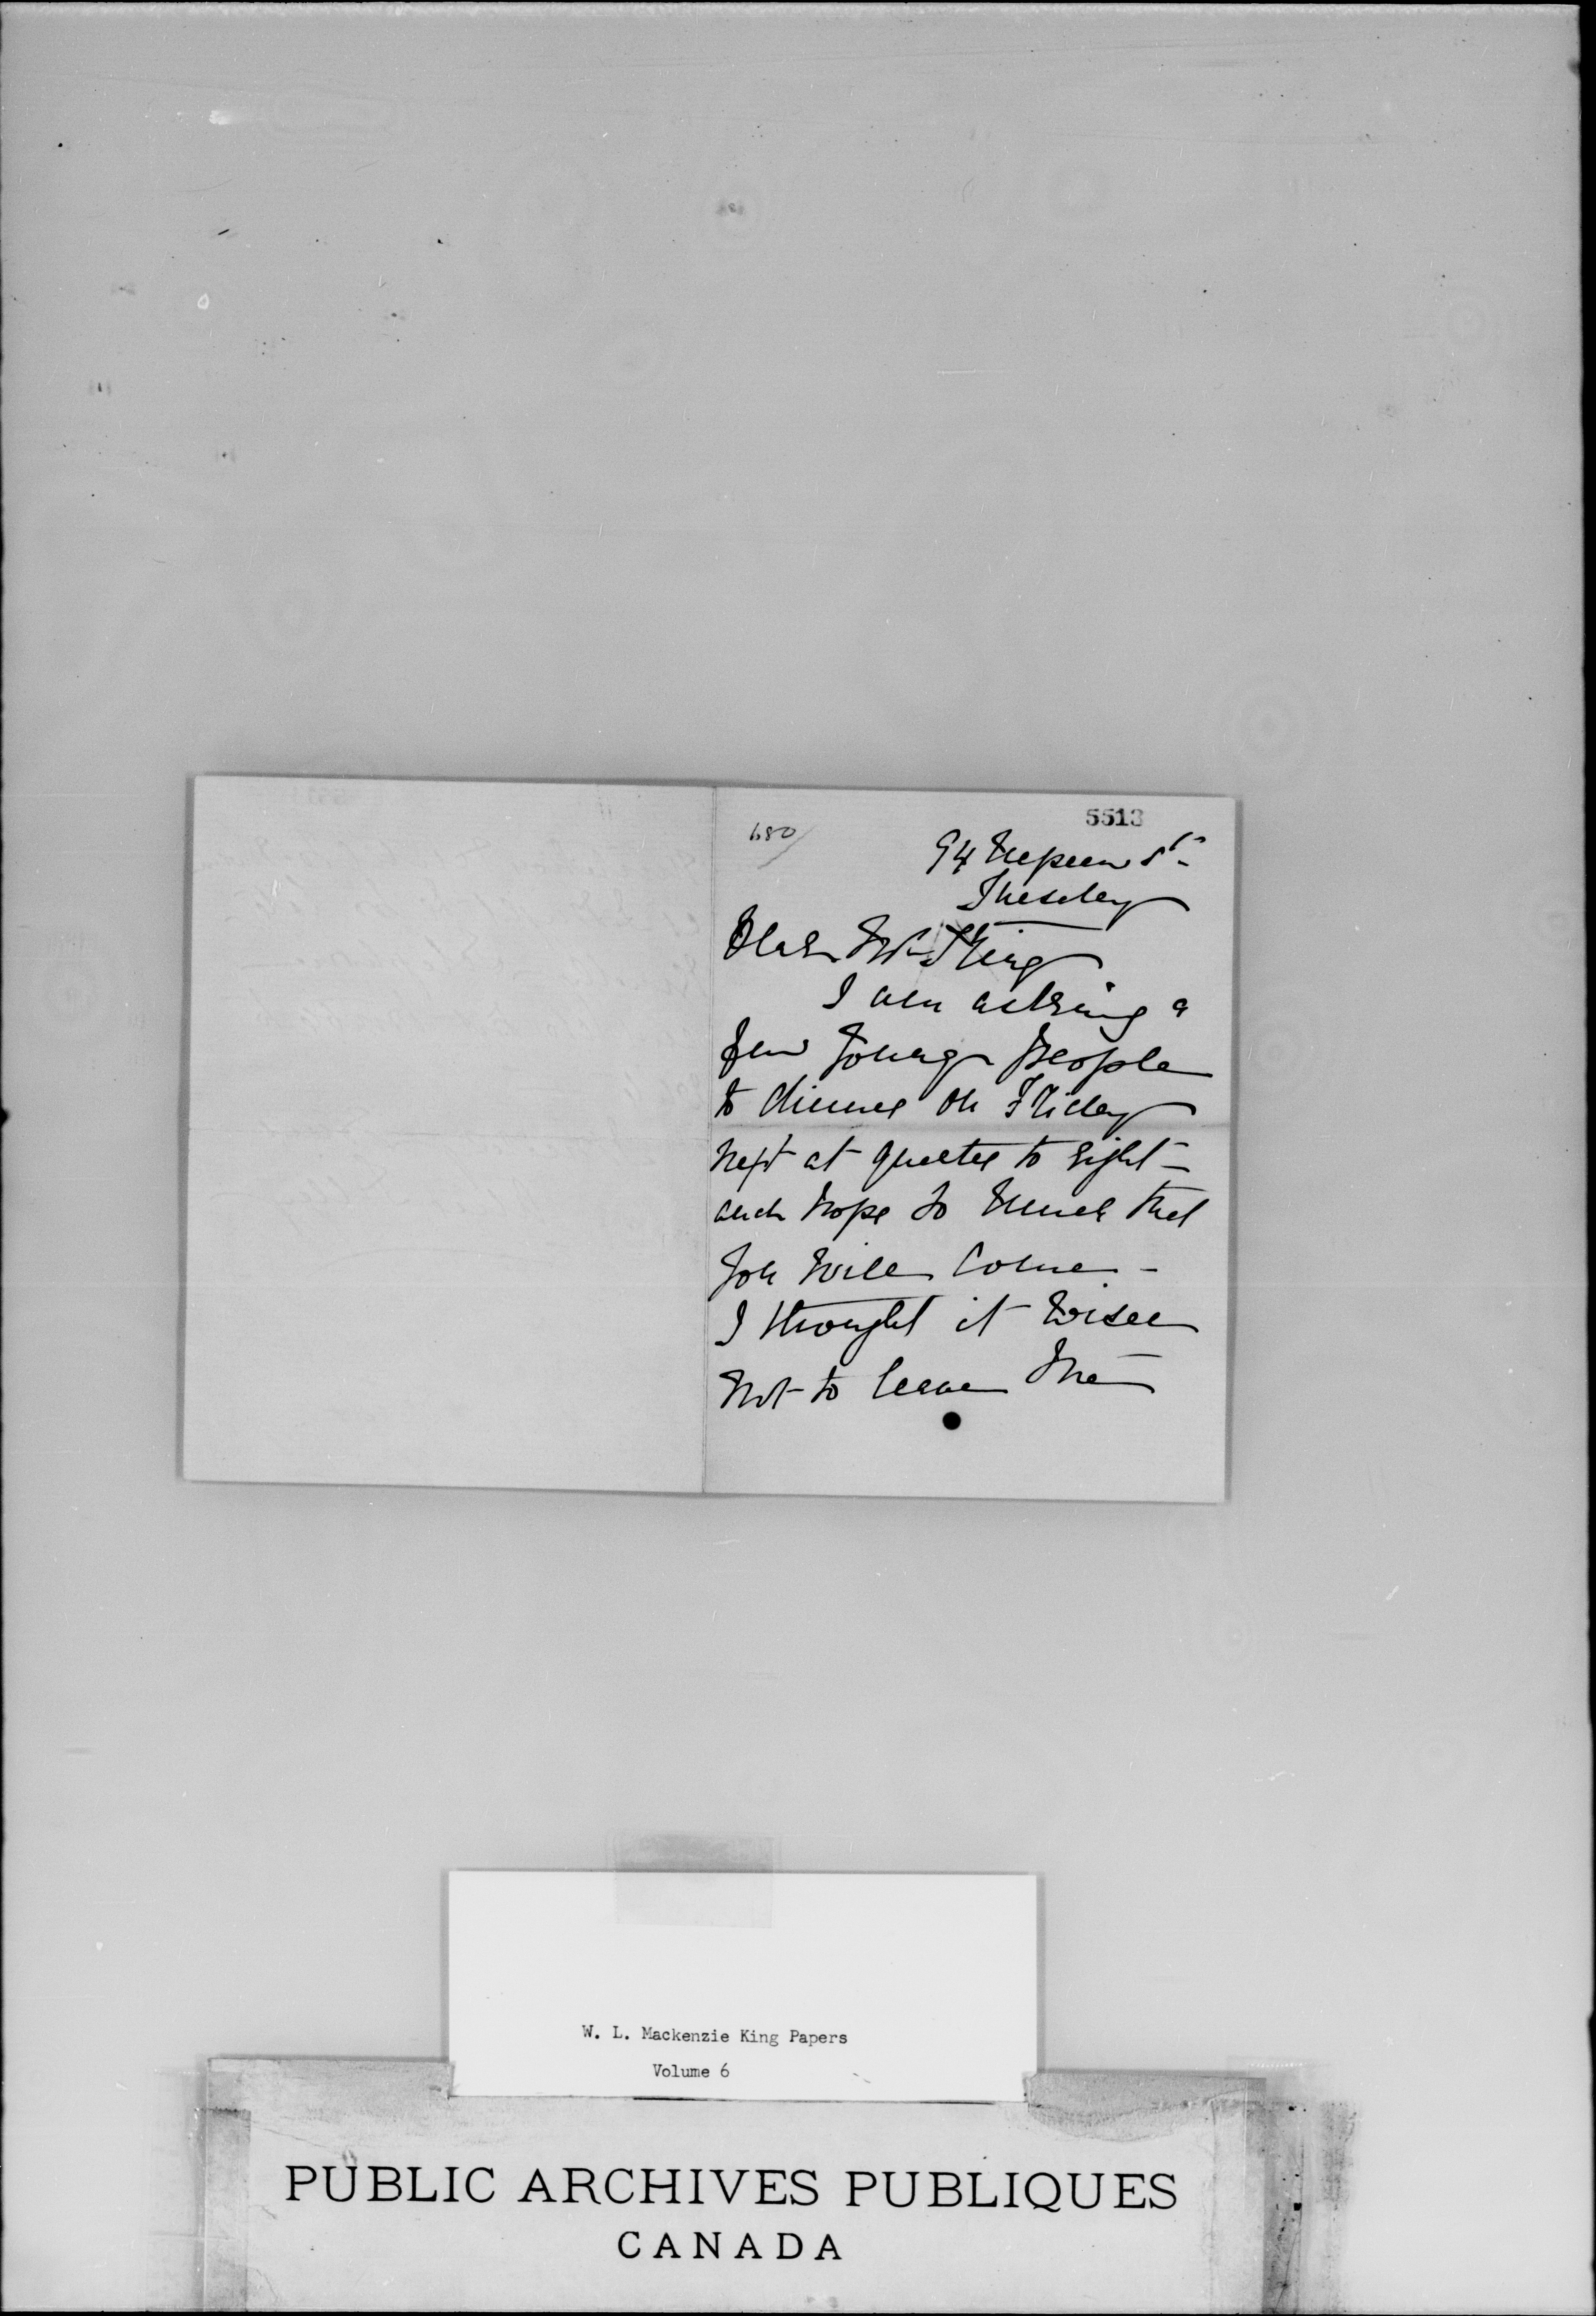 5513
680
94 Nepean St.
Tuesday
Dear Mr King
I am asking a
few young people
to dinner on Friday
next at quarter to eight -
and hope so much that
you will come -
I thought it wiser
not to leave the
W. L. Mackenzie King Papers
Volume 6
PUBLIC ARCHIVES PUBLIQUES
CANADA